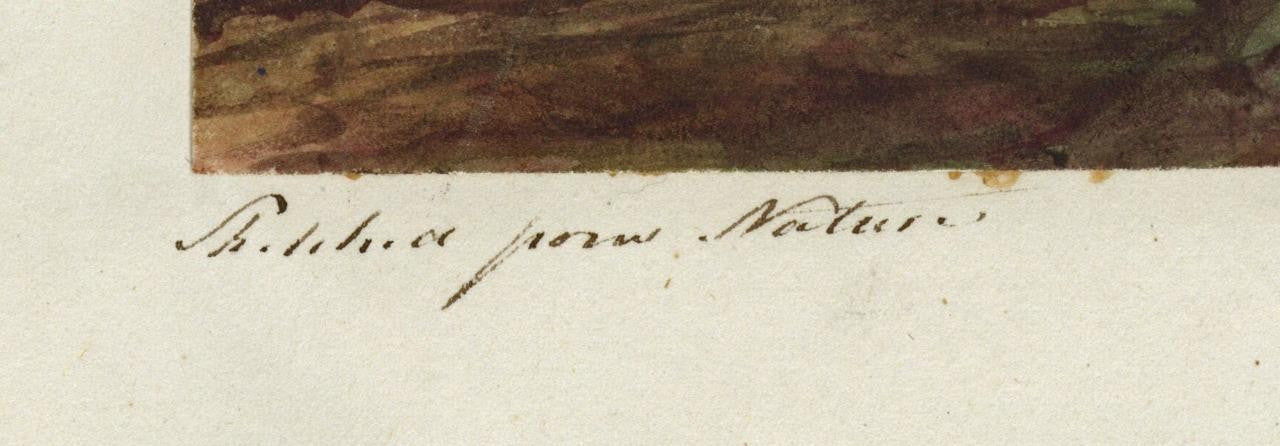 Sketched from Nature